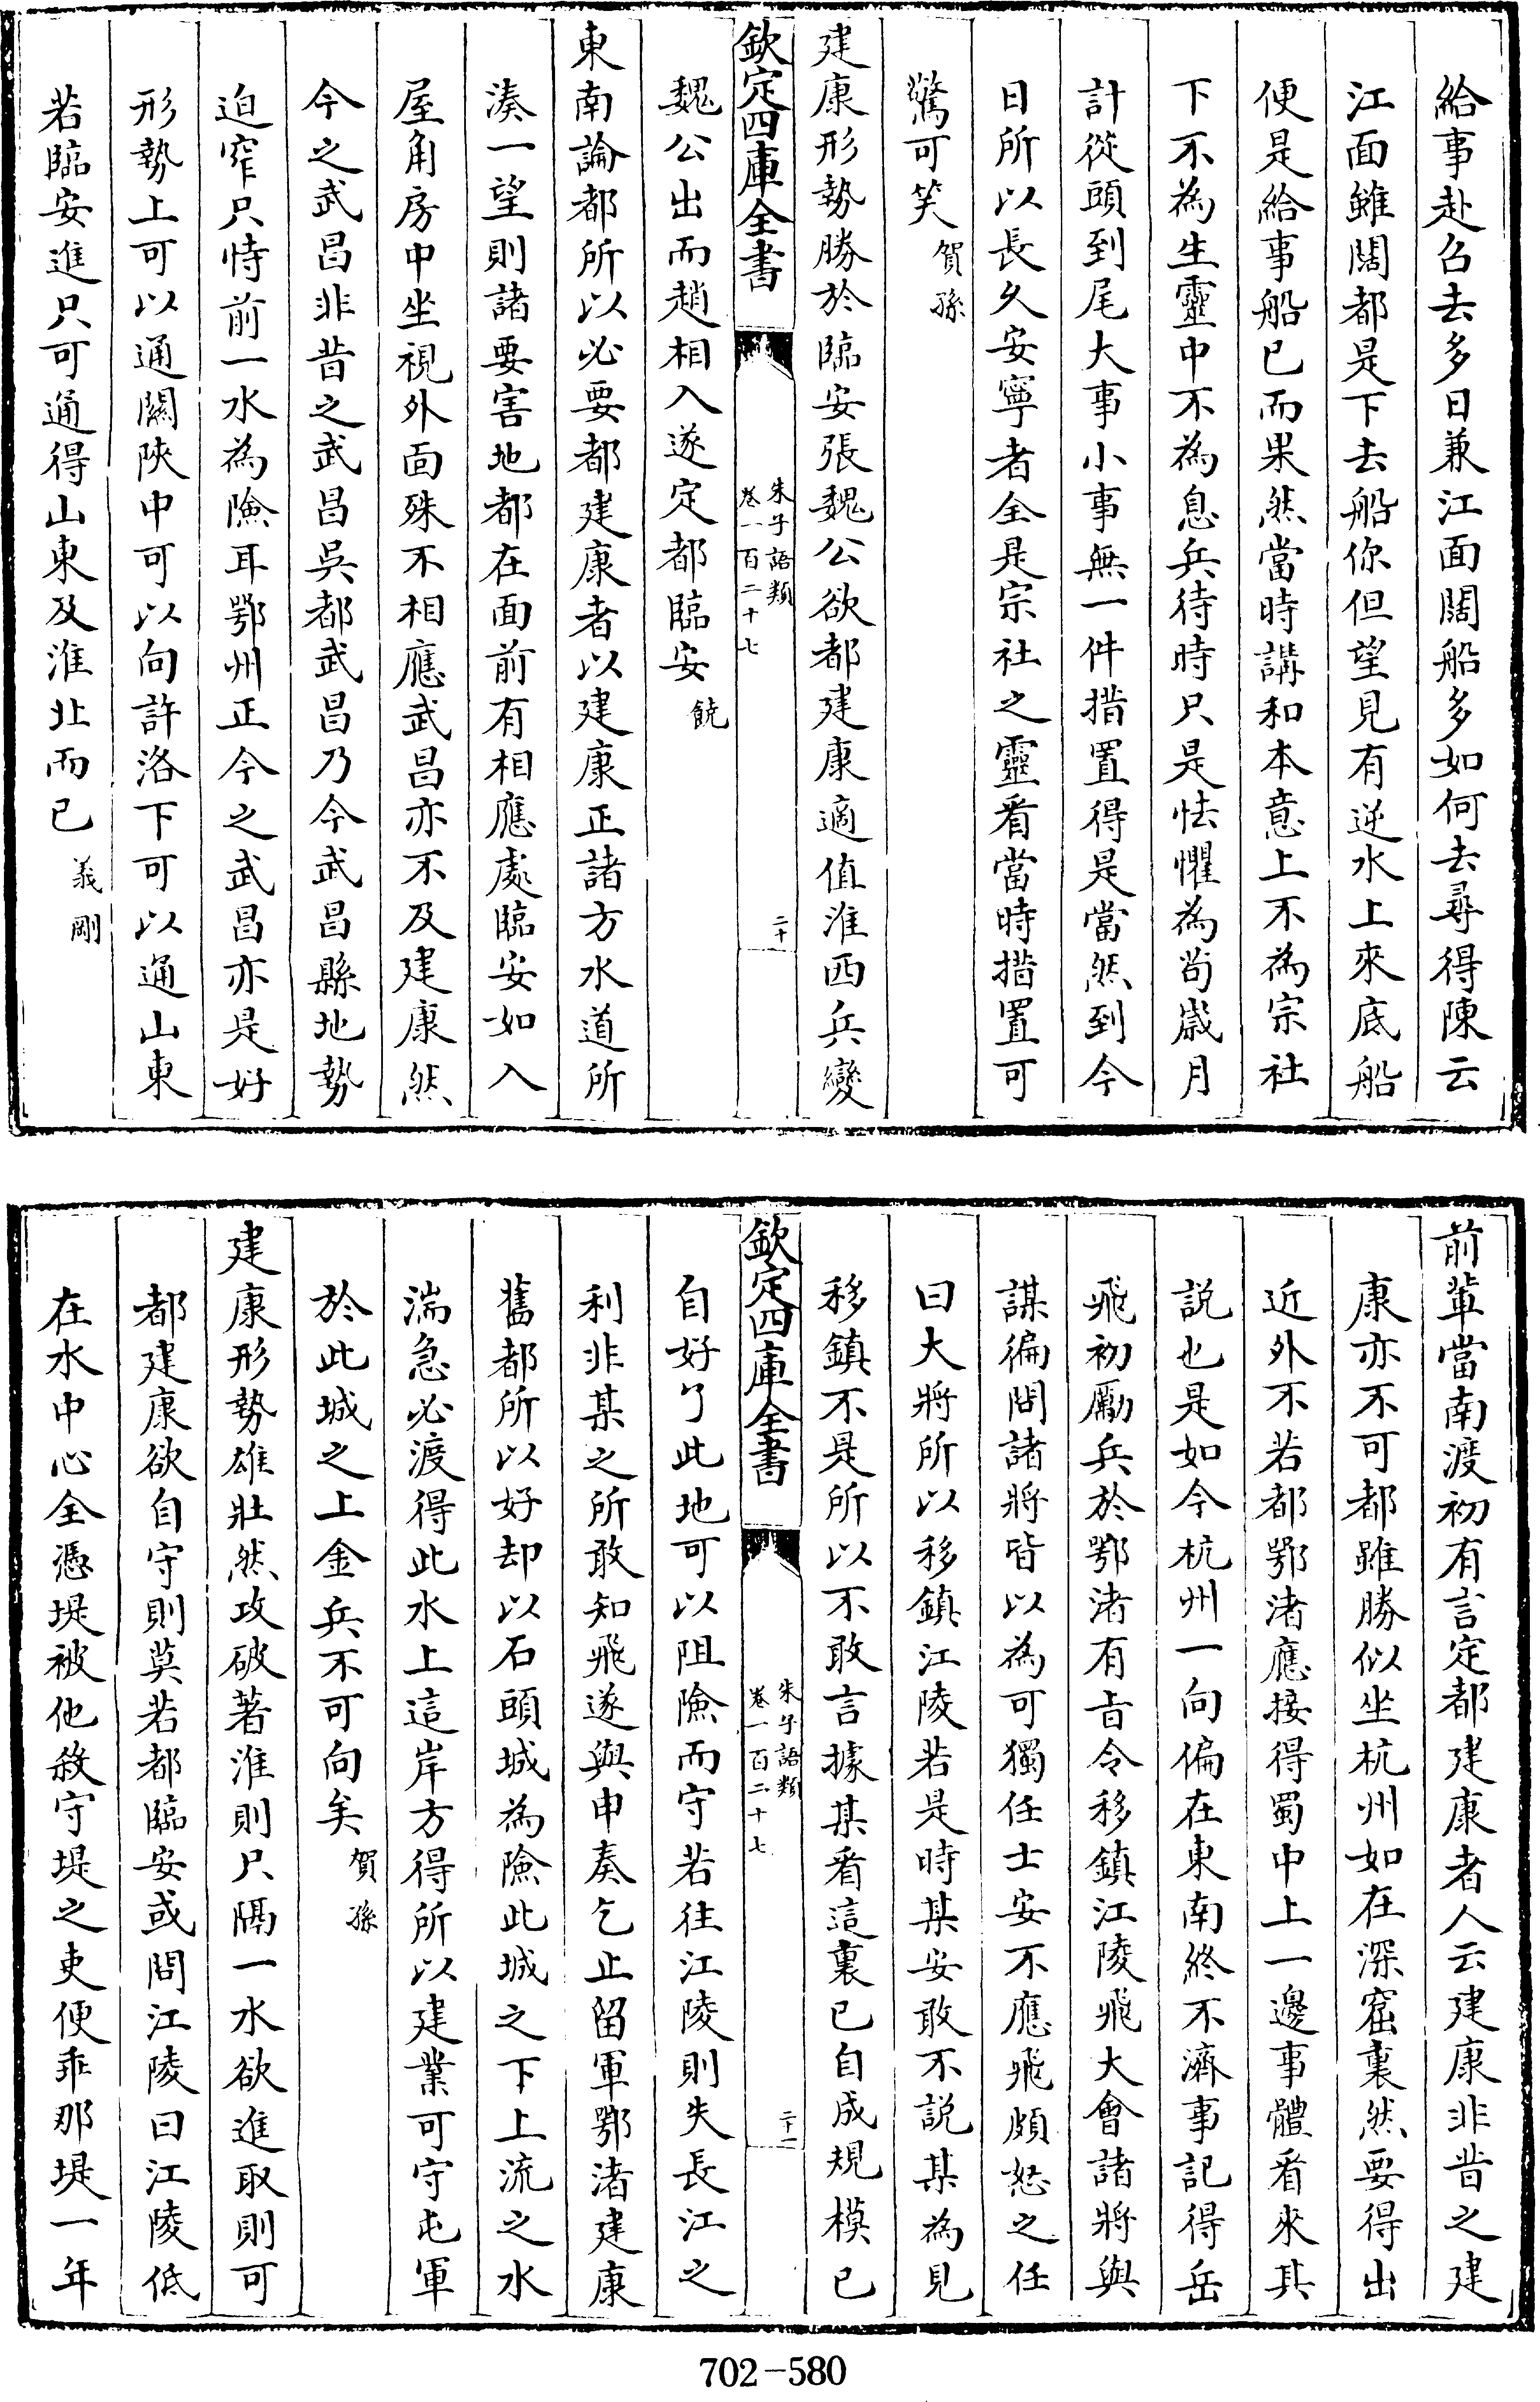 給事赴召去多日兼江面闊船多如何去尋得陳云
江面雖闊都是下去船你但望見有逆水上來底船
便是給事船已而果然當時講和本意上不為宗社
下不為生靈中不為息兵待時只是怯懼為茍嵗月
計從頭到尾大事小事無一件措置得是當然到今
日所以長久安寧者全是宗社之靈看當時措置可
驚可笑賀孫
建康形勢勝於臨安張魏公欲都建康適值淮西兵變
欽定四庫全書
朱子語類
卷一百二十七
二十
魏公出而趙相入遂定都臨安饒
東南論都所以必要都建康者以建康正諸方水道所
湊一望則諸要害地都在面前有相應處臨安如入
屋角房中坐視外面殊不相應武昌亦不及建康然
今之武昌非昔之武昌吳都武昌乃今武昌縣地勢
迫窄只恃前一水為險耳鄂州正今之武昌亦是好
形勢上可以通關陜中可以向許洛下可以通山東
若臨安進只可通得山東及淮北而已義剛
前輩當南渡初有言定都建康者人云建康非昔之建
康亦不可都雖勝似坐杭州如在深窟裏然要得出
近外不若都鄂渚應接得蜀中上一邊事體看來其
説也是如今杭州一向偏在東南終不濟事記得岳
飛初勵兵於鄂渚有旨令移鎮江陵飛大會諸將與
謀徧問諸將皆以為可獨任士安不應飛頗怒之任
曰大將所以移鎮江陵若是時某安敢不説某為見
移鎮不是所以不敢言據某看這裏已自成規模已
欽定四庫全書
朱子語類
卷一百二十七
二十一
自好了此地可以阻險而守若往江陵則失長江之
利非某之所敢知飛遂與申奏乞止留軍鄂渚建康
舊都所以好却以石頭城為險此城之下上流之水
湍急必渡得此水上這岸方得所以建業可守屯軍
於此城之上金兵不可向矣賀孫
建康形勢雄壯然攻破著淮則只隔一水欲進取則可
都建康欲自守則莫若都臨安或問江陵曰江陵低
在水中心全憑堤被他殺守堤之吏便乖那堤一年
702-580